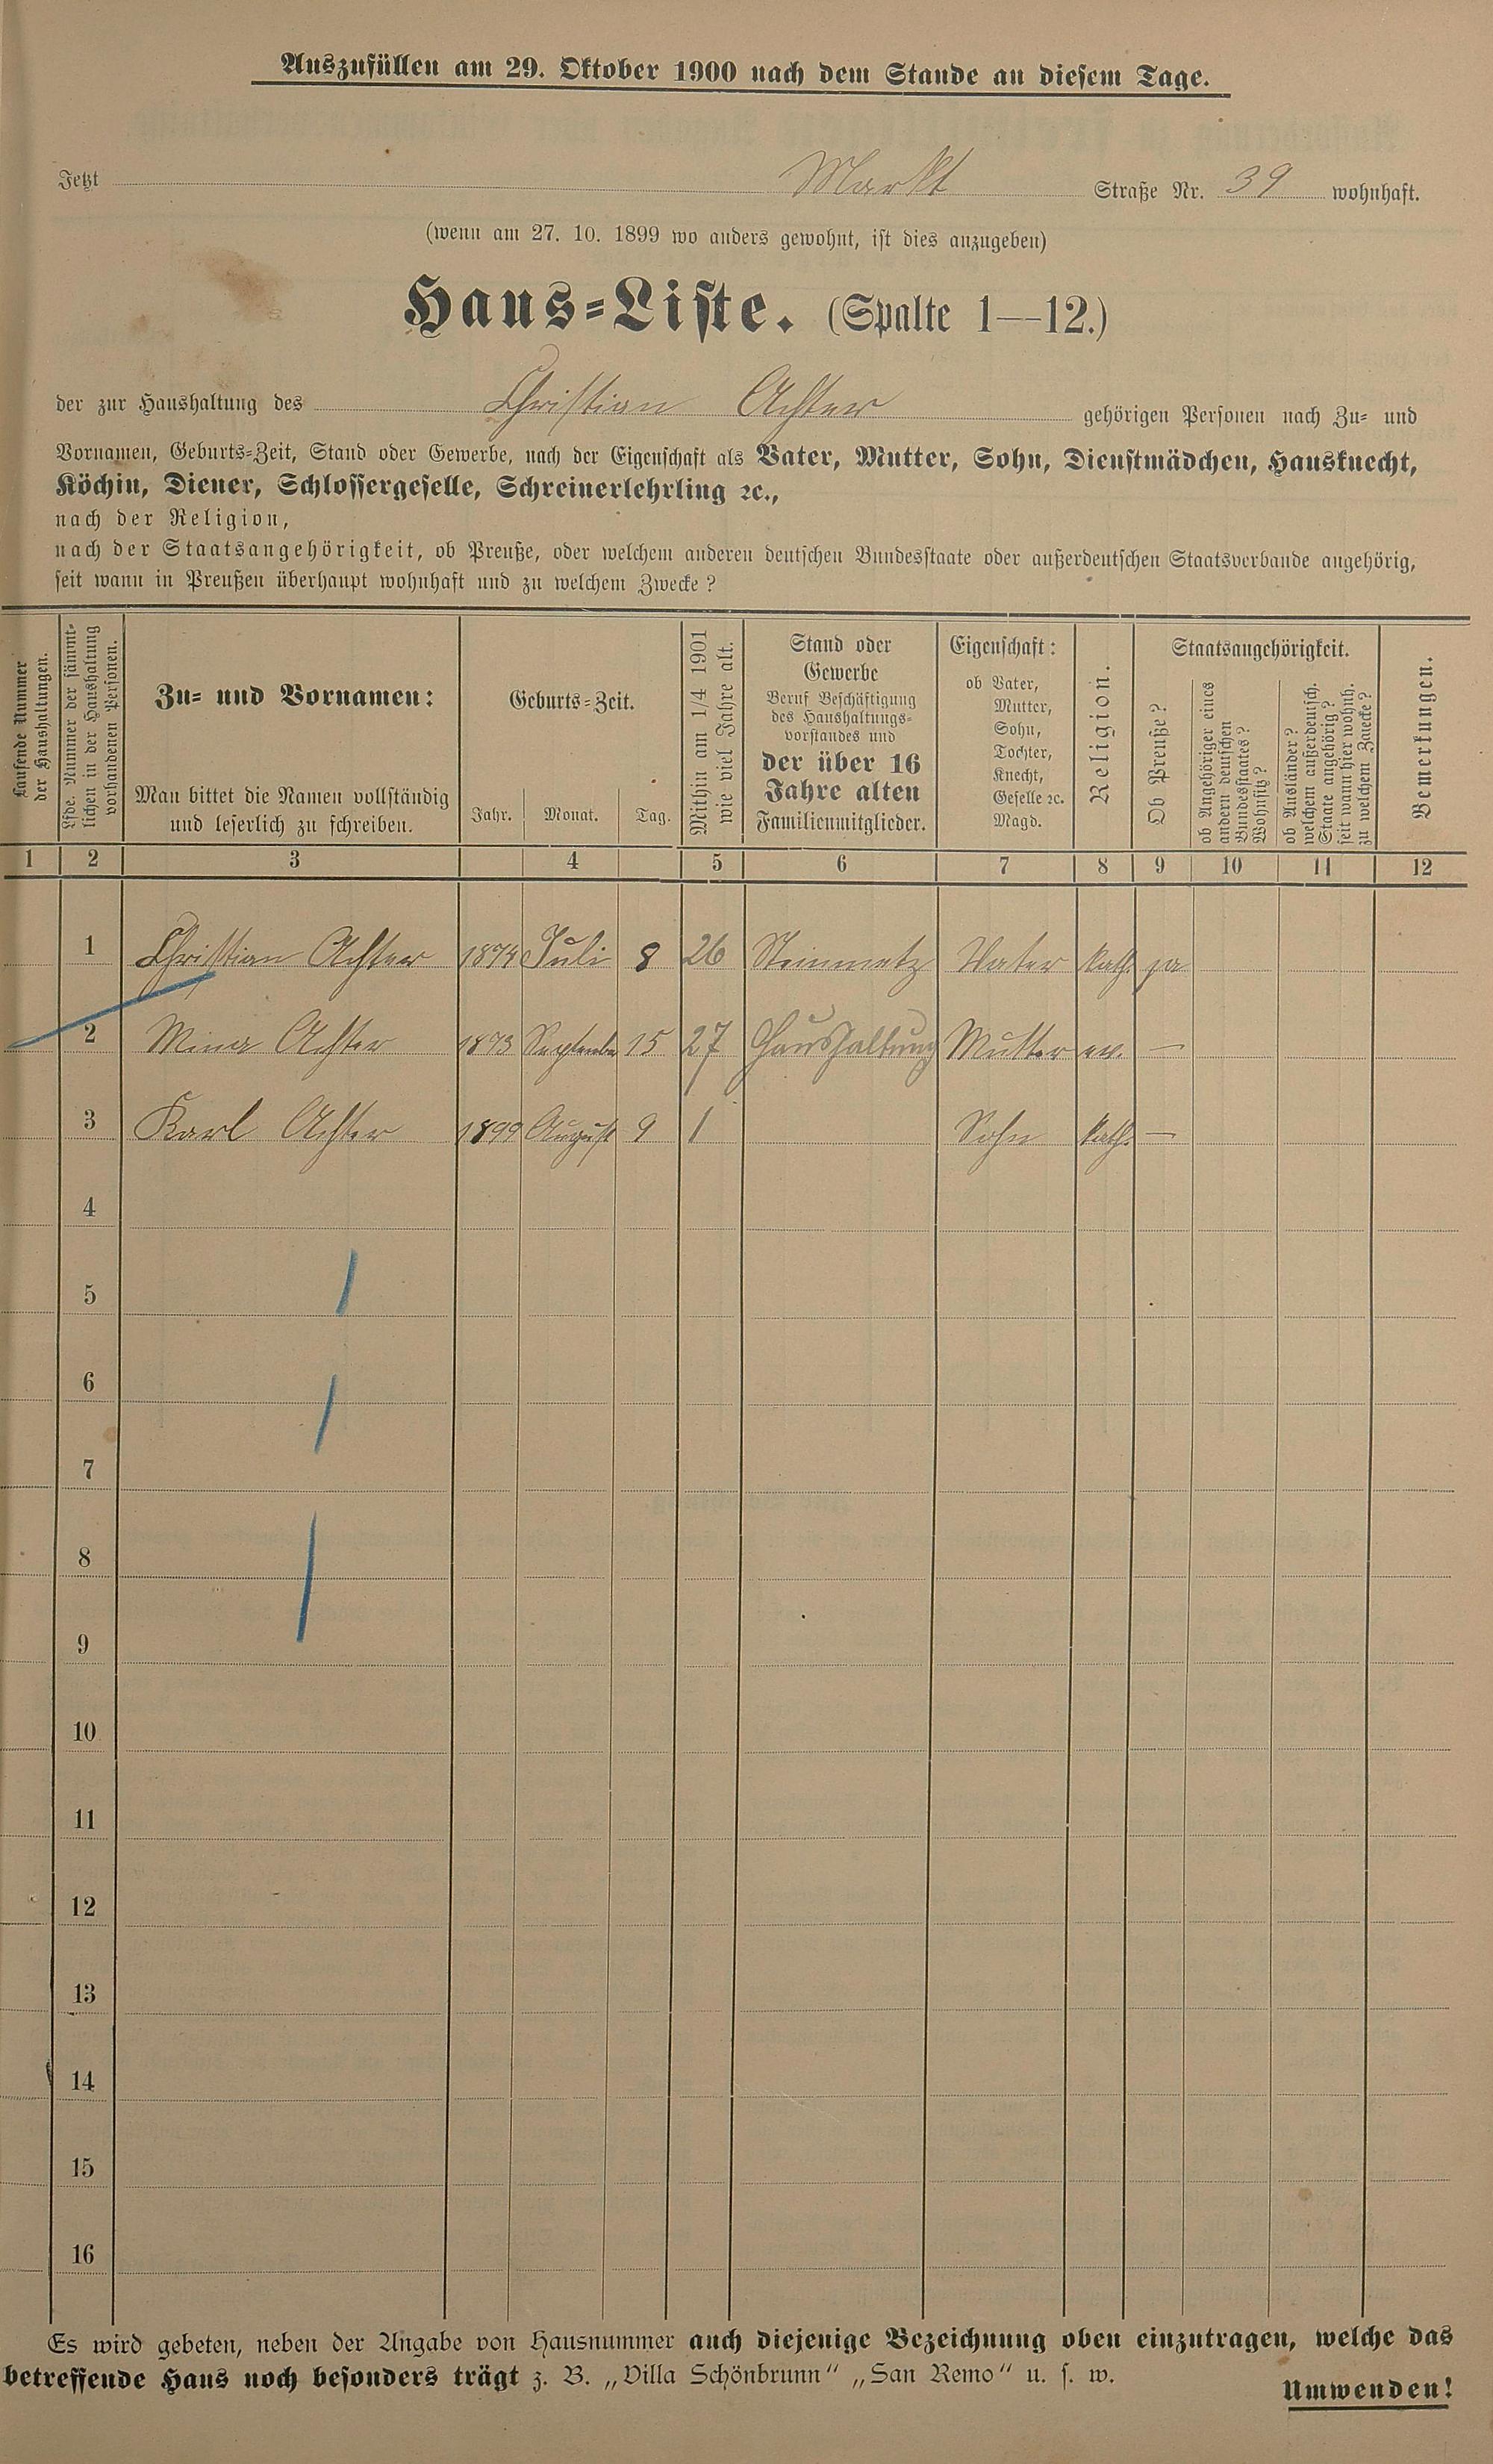 Auszufüllen am 29. Oktober 1900 nach dem Stande an diesem Tage.
Jetzt Markt Straße Nr. 39 wohnhaft.
(wenn am 27. 10. 1899 wo anders gewohnt, ist dies anzugeben)
Haus-Liste. (Spalte 1—12.)
der zur Haushaltung des Christian Achter gehörigen Personen nach Zu- und
Vornamen, Geburts-Zeit, Stand oder Gewerbe, nach der Eigenschaft als Vater, Mutter, Sohn, Dienstmädchen, Hausknecht,
Köchin, Diener, Schlossergeselle, Schreinerlehrling ꝛc.,
nach der Religion,
nach der Staatsangehörigkeit, ob Preuße, oder welchem anderen deutschen Bundesstaate oder außerdeutschen Staatsverbande angehörig,
seit wann in Preußen überhaupt wohnhaft und zu welchem Zwecke?
Laufende Nummer
der Haushaltungen.
Lfde. Nummer der sämmt-
lichen in der Haushaltung
vorhandenen Personen.
Zu- und Vornamen:
Man bittet die Namen vollständig
und leserlich zu schreiben.
Geburts-Zeit.
Jahr. Monat. Tag.
Mithin am 1/4 1901
wie viel Jahre alt.
Stand oder
Gewerbe
Beruf Beschäftigung
des Haushaltungs-
vorstandes und
der über 16
Jahre alten
Familienmitglieder.
Eigenschaft:
ob Vater,
Mutter,
Sohn,
Tochter,
Knecht,
Geselle ꝛc.
Magd.
Religion.
Staatsangehörigkeit.
Ob Preuße?
ob Angehöriger eines
andern deutschen
Bundesstaates?
Wohnsitz?
ob Ausländer?
welchem außerdeutsch.
Staate angehörig?
seit wann hier wohnh.
zu welchem Zwecke?
Bemerkungen.
1 2 3 4 5 6 7 8 9 10 11 12
1 Christian Achter 1874 Juli 8 26 Steinmetz Vater kath. ja
2 Mina Achter 1873 September 15 27 Haushaltung Mutter ev. —
3 Karl Achter 1899 August 9 1 Sohn kath. —
4
5
6
7
8
9
10
11
12
13
14
15
16
Es wird gebeten, neben der Angabe von Hausnummer auch diejenige Bezeichnung oben einzutragen, welche das
betreffende Haus noch besonders trägt z. B. „Villa Schönbrunn“ „San Remo“ u. s. w.
Umwenden!